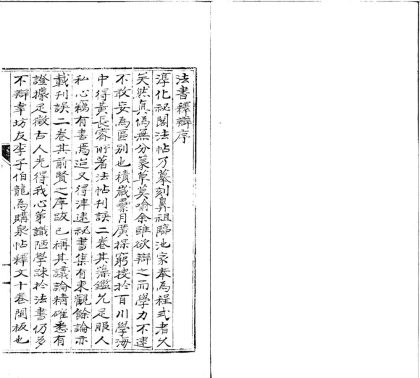 法書釋辯序
淳化祕閣法帖乃摹刻鼻祖臨池家奉為程式者久
矣然真偽無分篆草莫喻余雖欲辯之而學力不逮
不敢妄為區別也積歲累月廣採窮搜於百川學海
中得黃長睿所著法帖刊誤二卷其藻鑑允足服人
私心竊有喜焉迨又得津逮祕書集有東觀餘論亦
載刊誤二卷其前賢之序跋已稱其議論精確悉有
證據足徵古人先得我心第識陋學疎於法書仍多
不辯幸坊友李子伯龍為購泉帖釋文十卷閣板也